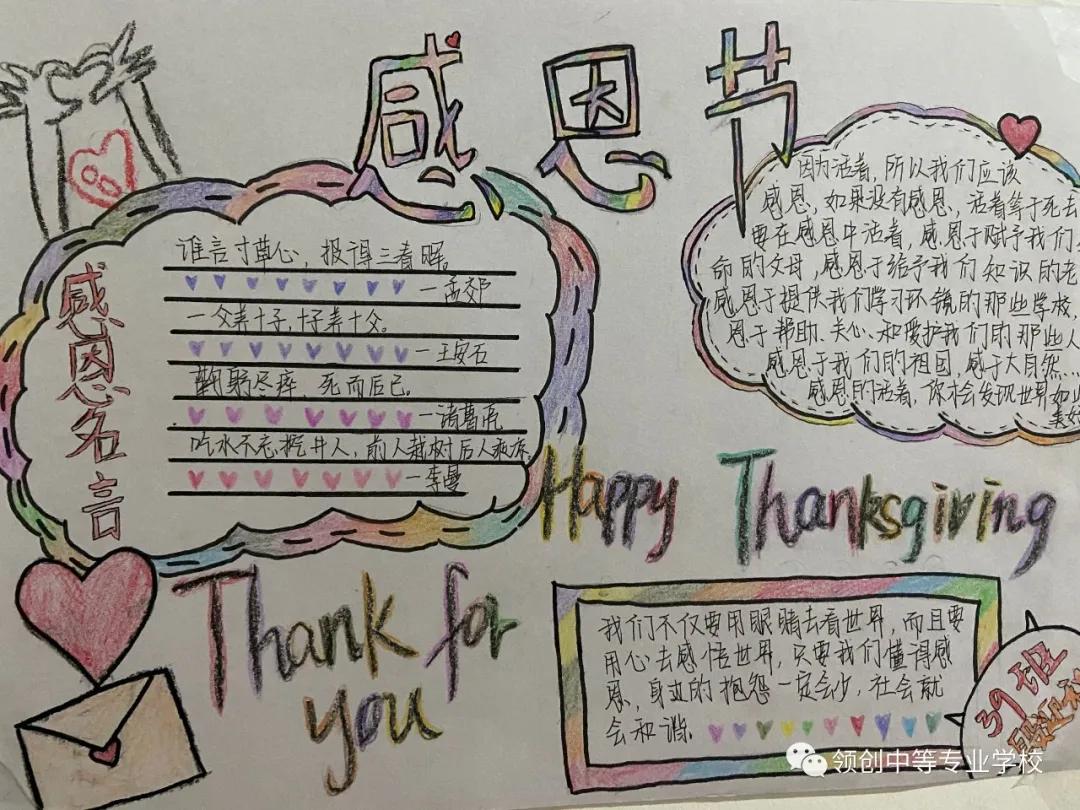 感恩节
感恩名言
谁言寸草心,报得三春晖。
—孟郊
一父养十子,十子养十父。
—王安石
鞠躬尽瘁,死而后已。
—诸葛亮
吃水不忘挖井人,前人栽树后人乘凉。
—李曼
因为活着,所以我们应该
感恩,如果没有感恩,活着等于死去
要在感恩中活着,感恩于赋予我们
命的父母,感恩于给予我们知识的老
感恩于提供我们学习环镜的那些学校,
恩于帮助、关心、和爱护我们的那些人
感恩于我们的祖国,感于大自然...
感恩的活着,你才会发现世界如此
美好
Happy Thanksgiving
Thank for
you
我们不仅要用眼睛去看世界,而且要
用心去感悟世界,只要我们懂得感
恩,身边的抱怨一定会少,社会就
会和谐。
39班
领创中等专业学校